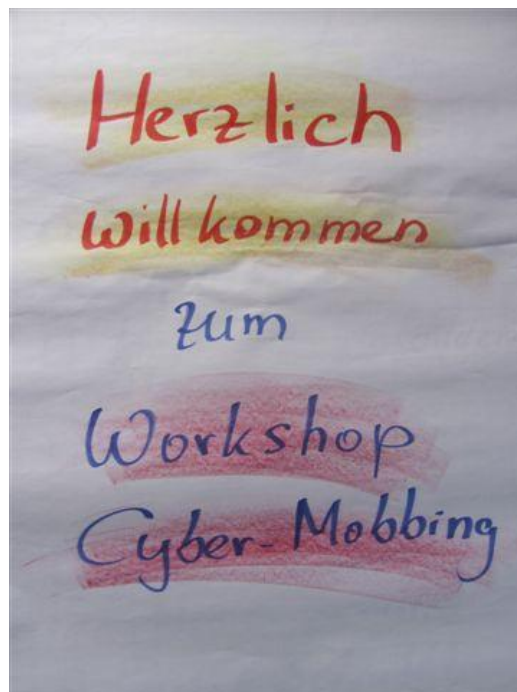 Herzlich
willkommen
zum
Workshop
Cyber-Mobbing